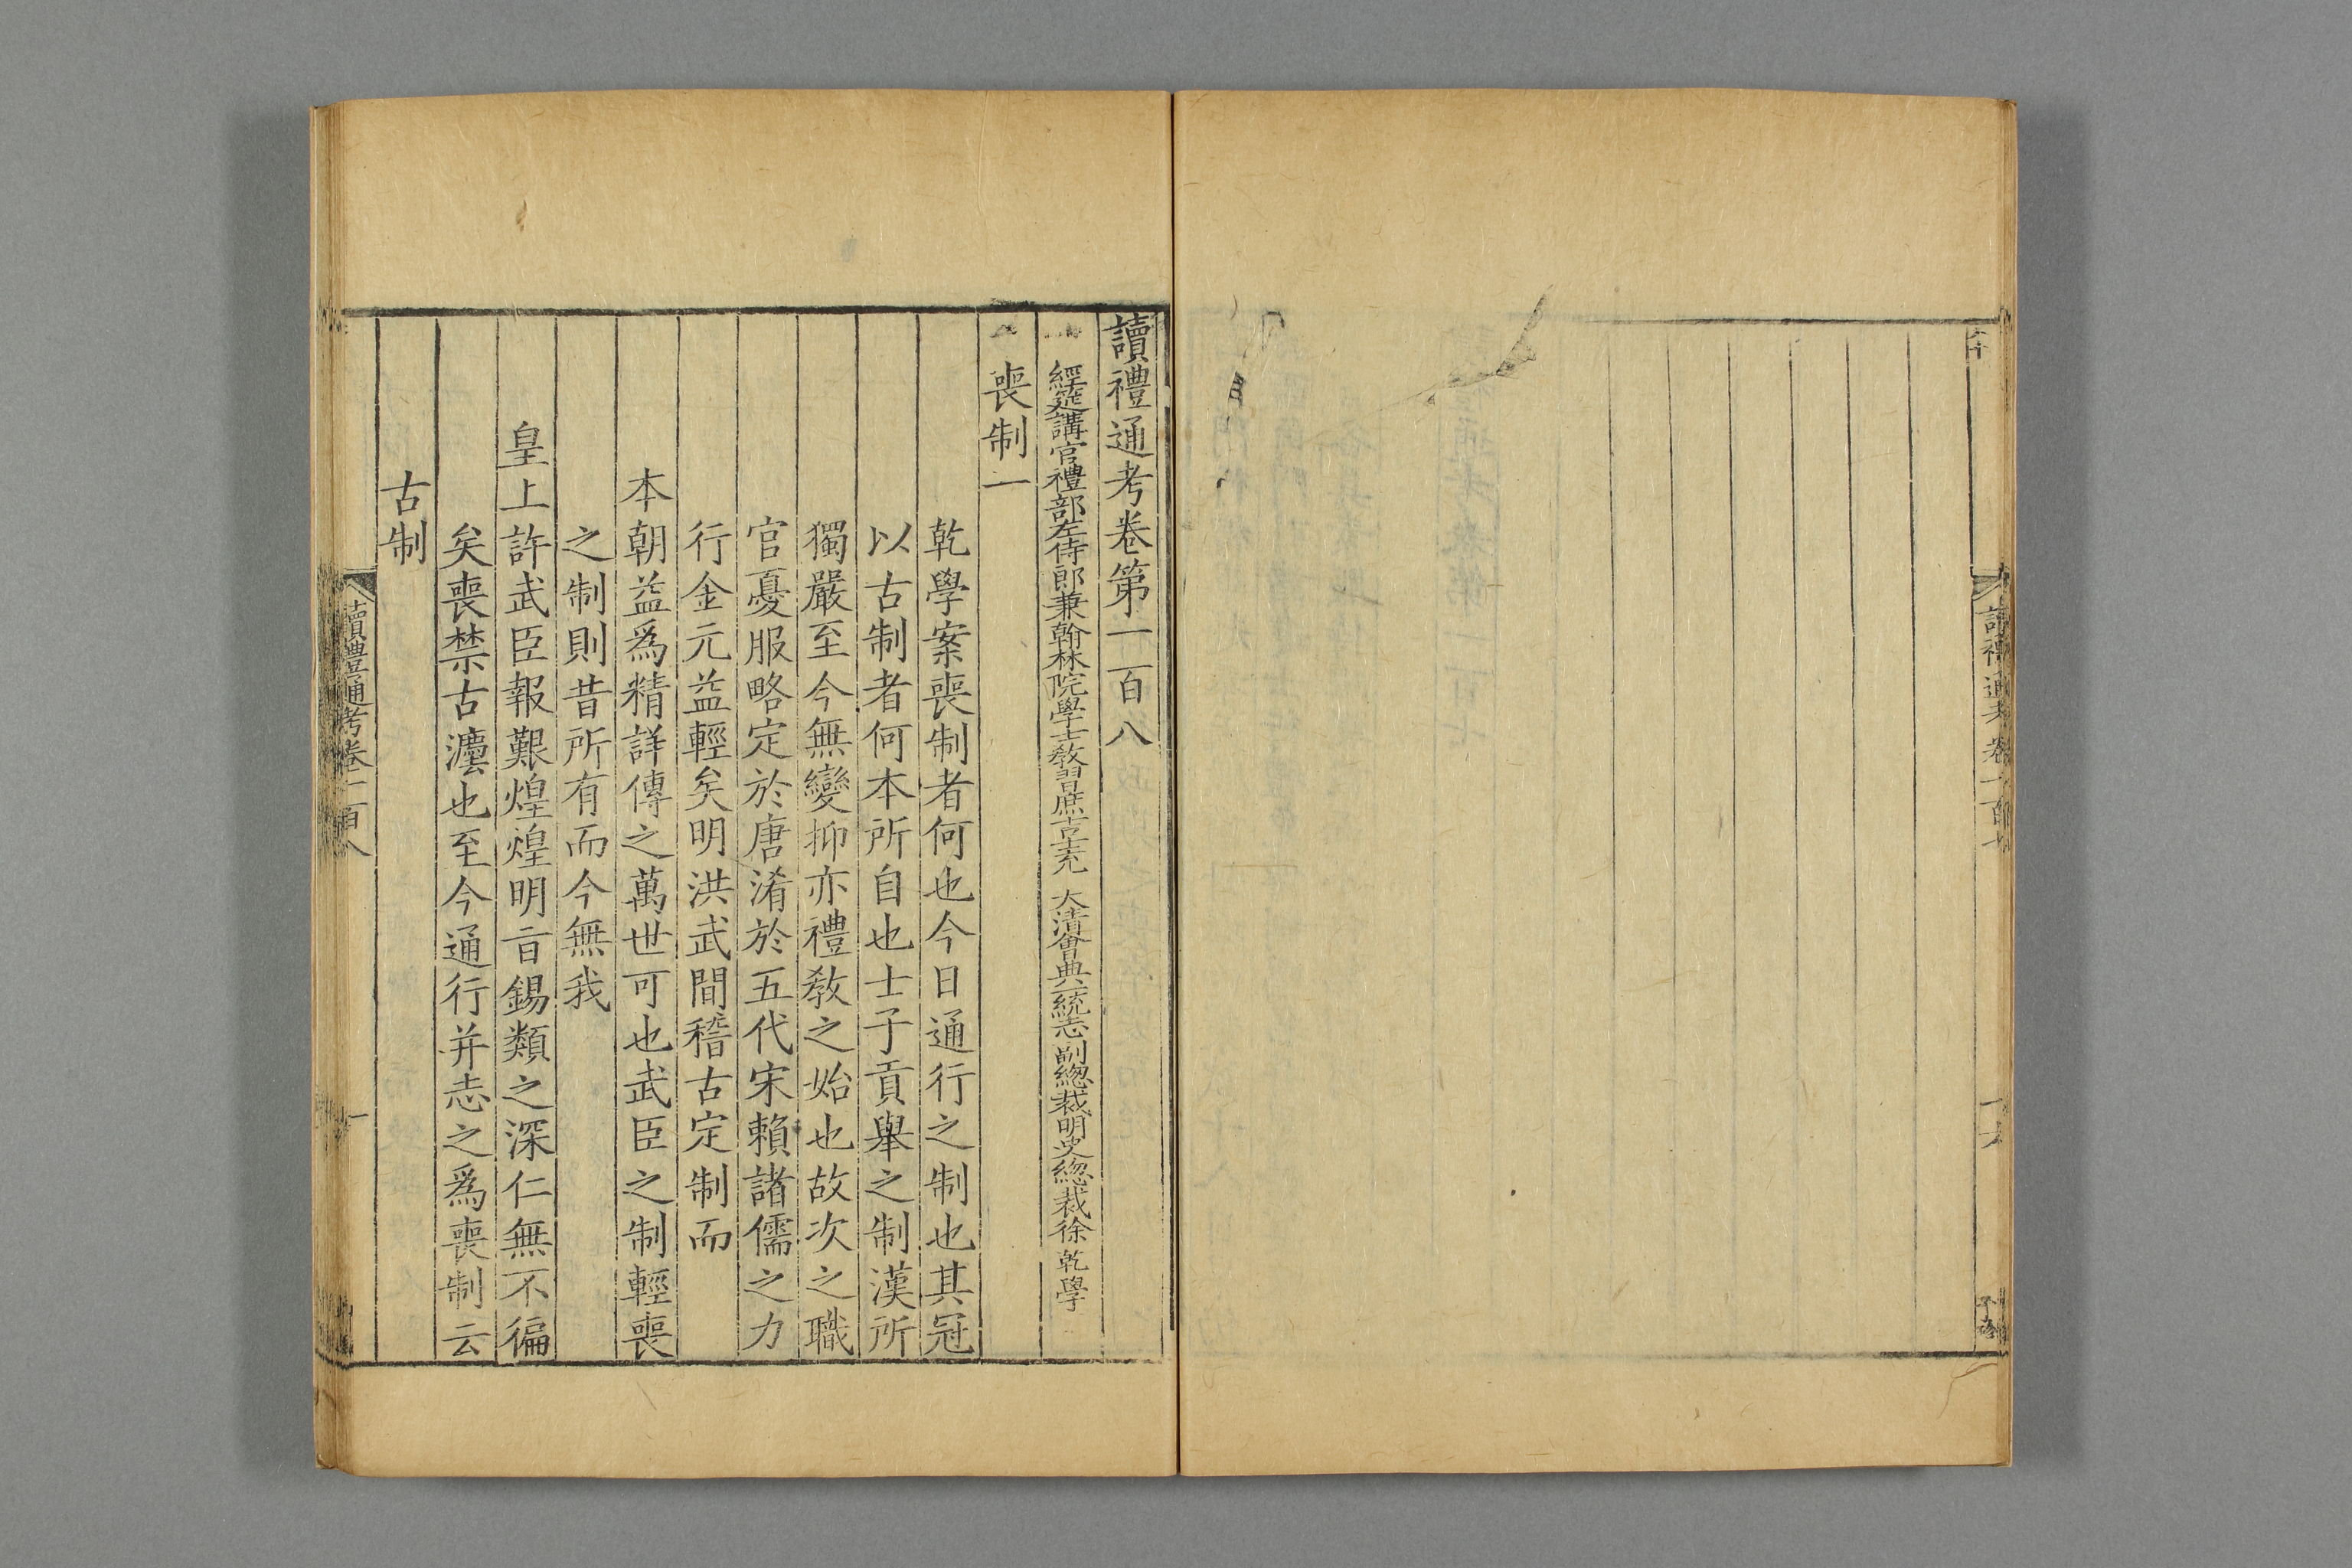 讀禮通考卷一百七
十六
讀禮通考卷第一百八
經筵講官禮部左侍郎兼翰林院學士教習庶吉士充 大清會典一統志副總裁明史總裁徐乾學
喪制一
乾學案喪制者何也今日通行之制也其冠
以古制者何本所自也士子貢舉之制漢所
獨嚴至今無變抑亦禮敎之始也故次之職
官憂服略定於唐淆於五代宋賴諸儒之力
行金元益輕矣明洪武間稽古定制而
本朝益爲精詳傳之萬世可也武臣之制輕喪
之制則昔所有而今無我
皇上許武臣報艱煌煌明旨錫類之深仁無不徧
矣喪禁古灋也至今通行并志之爲喪制云
古制
讀禮通考卷一百八
一